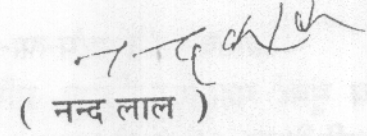 नन्द लाल
( नन्द लाल )